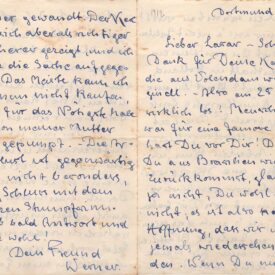 er gewandt. Der
sich aber als richtiger
gezeigt und ich
die Sache aufgege-
Das Meiste kann ich
nun nicht kaufen.
für das Nötigste habe
on meiner Mutter
gepumpt. - Die Ar-
ist gegenwärtig
nicht besonders
Schluss mit dem
en Stumpfsinn.
bald Antwort und
e wohl!
Dein Freund
Werner.
Dortmund
Lieber Lasar - Sch
Dank für Deine Ka
die aus Volendam
Also am 25
wirklich los! Mensch
für eine famose
hast Du vor Dir! D
Du aus Brasilien w
zurückkommst, gla
ja nicht, Du wohl
nicht, es ist also ke
Hoffnung, dass wir u
jemals wiedersehen
den. Wenn Du nu